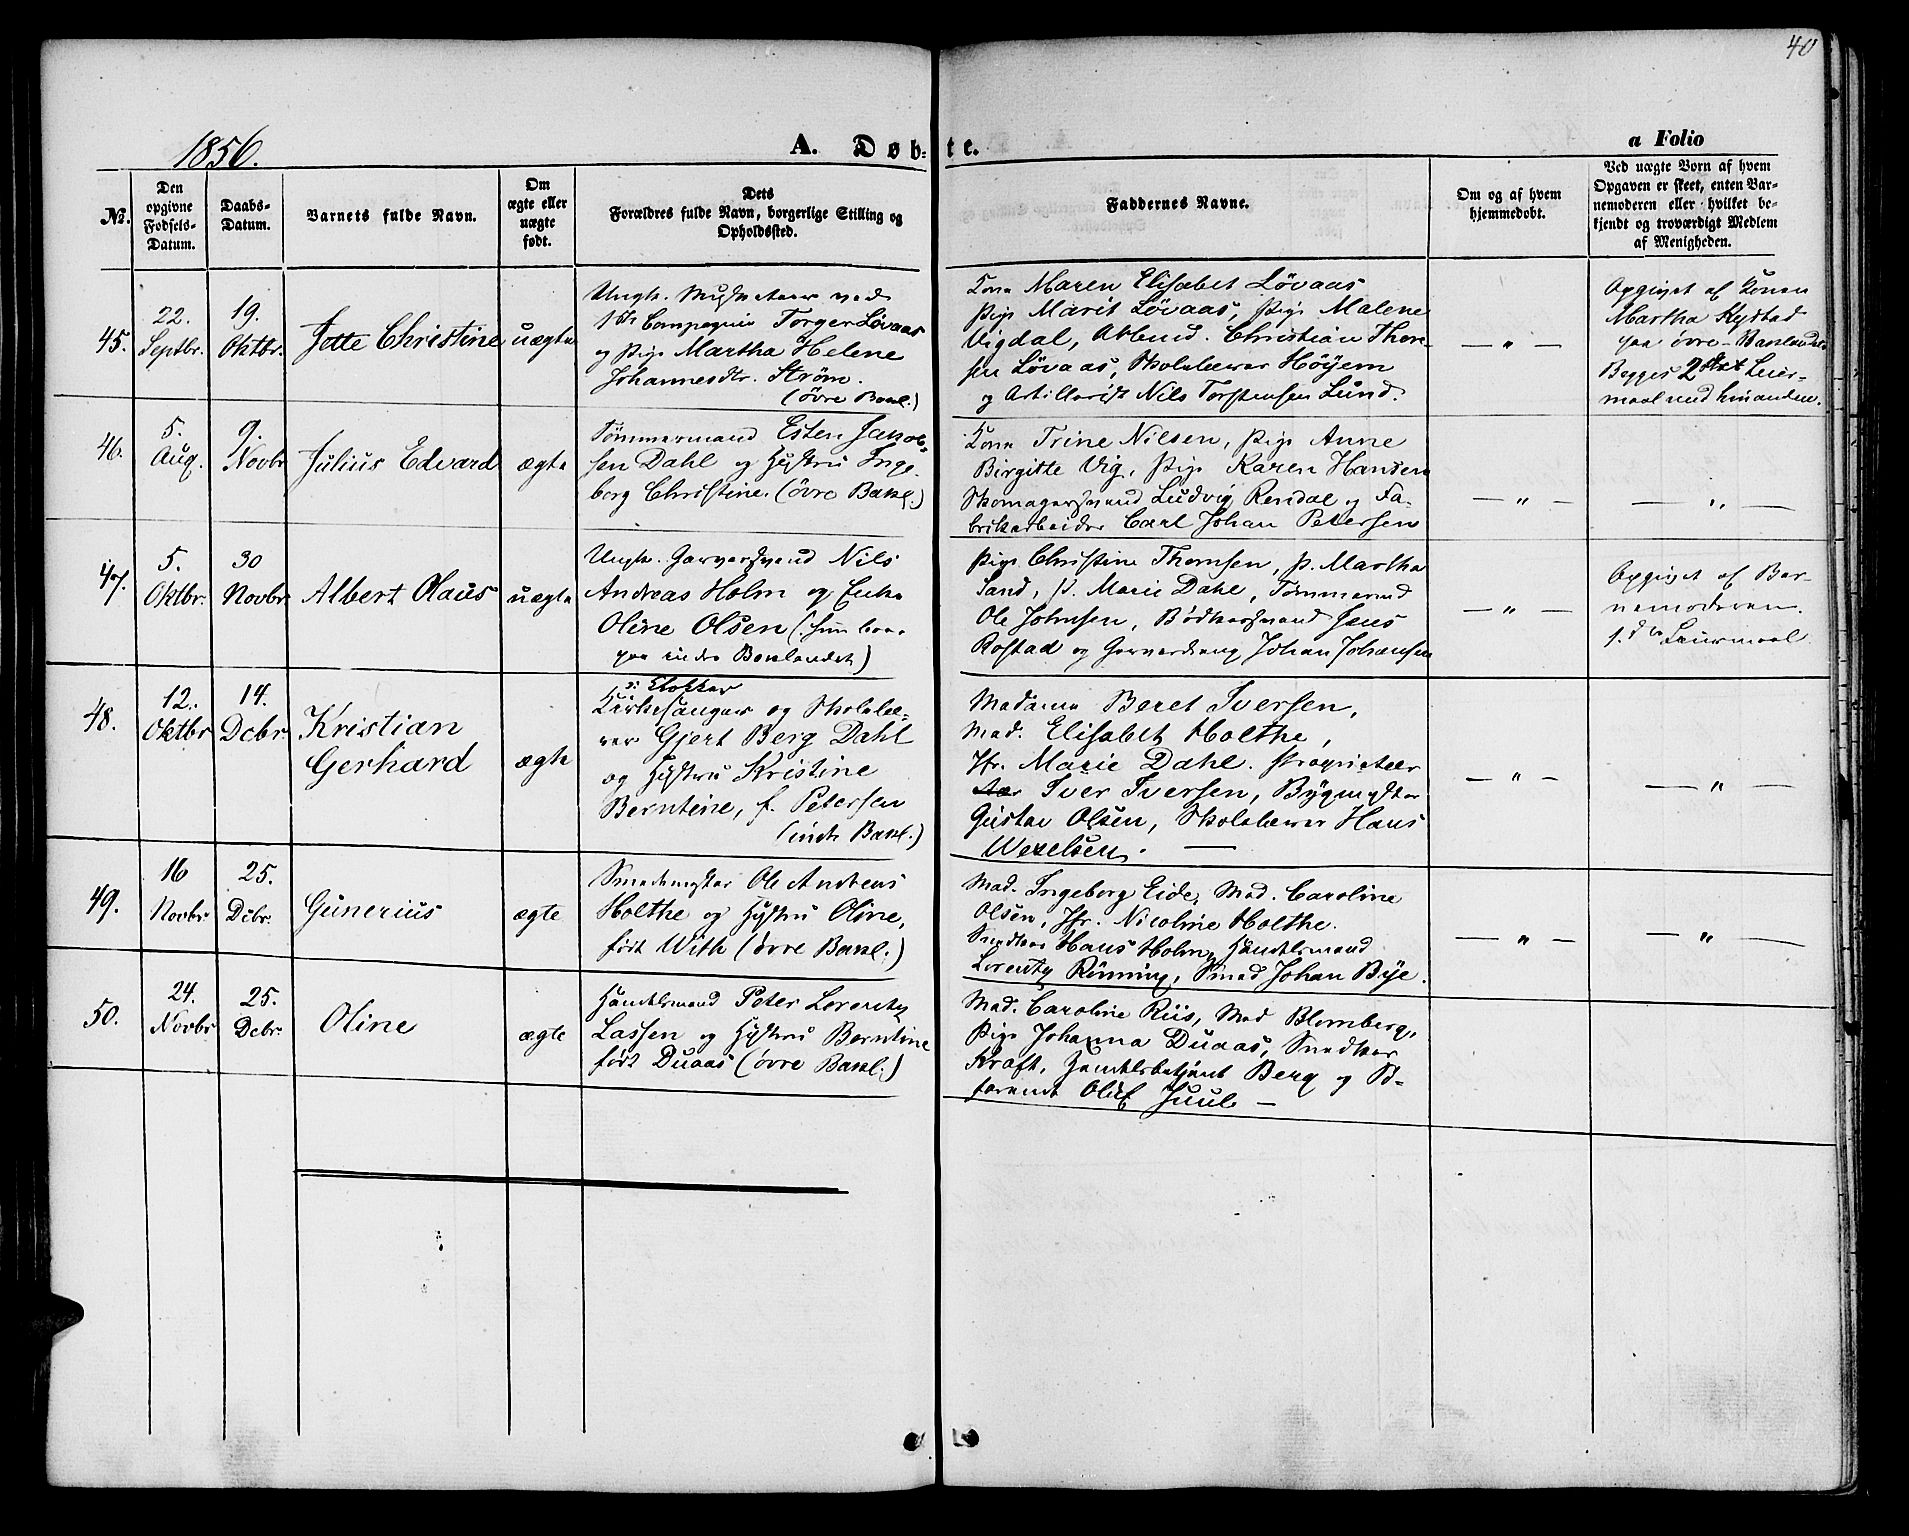 40
1856.
A. Døb-te.
a Folio
No.
Den
opgivne
Fødsels-
Datum.
Daabs-
Datum.
Barnets fulde Navn.
Om
ægte eller
uægte
født.
Dets
Forældres fulde Navn, borgerlige Stilling og
Opholdssted.
Faddernes Navne.
Om og af hvem
hjemmedøbt.
Ved uægte Børn af hvem
Opgaven er skeet, enten Bar-
nemoderen eller hvilket be-
kjendt og troværdigt Medlem
af Menigheden.
45.
22.
Septbr.
19.
Oktbr.
Jette Christine
uægte
Ungk. Musketeer ved
1ste Compagnie Torger Lövaas
og Pige Martha Helene
Johannesdtr. Ström.
(övre Bakl.)
Kone Maren Elisabet Lövaas
Pige Marit Lövaas, Pige Malene
Vigdal, Arbmd. Christian Thom-
sen Lövaas, Skolelærer Höyem
og Artillerist Nils Torstensen Lund.
— " —
Opgivet af Konen
Martha Rydstad
paa övre Baklandet.
Begges 2det Leier-
maal med hinanden.
46.
5.
Aug.
9.
Novbr
Julius Edvard
ægte
Tömmermand Esten Jakob-
sen Dahl og Hustru Inge-
borg Christine. (övre Bakl.)
Kone Trine Nilsen, Pige Anne
Birgitte Vig, Pige Karen Hansen
Skomagersvend Ludvig Rendal og Fa-
brikarbeider Carl Johan Petersen
— " —
— " —
47.
5.
Oktbr.
30
Novbr
Albert Olaus
uægte
Ungk. Garversvend Nils
Andreas Holm og Enke
Oline Olsen (hun boer
paa indre Baklandet)
Pige Christine Thomsen, P. Martha
Sand, P. Marie Dahl, Tömmermd
Ole Johnsen, Bödkersvend Jens
Rostad og Garverdreng Johan Johansen
— " —
Opgivet af Bar-
nemoderen.
1.de Leiermaal
48.
12.
Oktbr
14.
Dcbr.
Kristian
Gerhard
ægte
ɔ: Klokker
Kirkesanger og Skolelæ-
rer Gjert Berg Dahl
og Hustru Kristine
Berntine, f. Petersen
(indre Bakl.)
Madame Beret Iversen,
Mad. Elisabet Holthe,
Jfr. Marie Dahl. Proprietær
Iver Iversen, Bygmester
Gustav Olsen, Skolelærer Hans
Wexelsen. —
— " —
— " —
49.
16
Novbr
25.
Dcbr.
Gunerius
ægte
Smedmester Ole Andreas
Holthe og Hustru Oline,
født With (övre Bakl.)
Mad. Ingeborg Eide, Mad. Caroline
Olsen, Jfr. Nicoline Holthe.
Snedker Hans Holm, Handelsmand
Lorentz Rönning, Smed Johan Bye.
— " —
— " —
50.
24.
Novbr
25.
Dcbr.
Oline
ægte
Handelsmand Peter Lorentz
Lassen og Hustru Berntine
født Duaas (övre Bakl.)
Mad. Caroline Riis, Mad Blomberg,
Pige Johanna Duaas, Snedker
Kraft, Handelsbetjent Berg og
Oluf Juul —